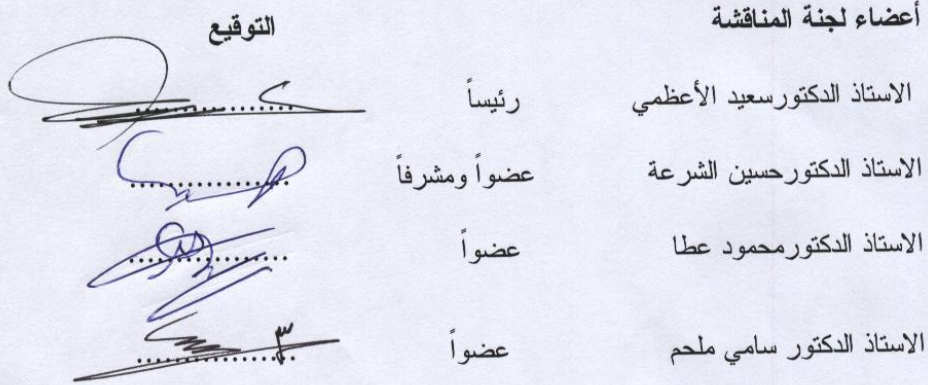 أعضاء لجنة المناقشة التوقيع
الاستاذ الدكتورسعيد الأعظمي رئيساً ..................
الاستاذ الدكتورحسين الشرعة عضواً ومشرفاً ..................
الاستاذ الدكتورمحمود عطا عضواً ..................
الاستاذ الدكتور سامي ملحم عضواً ..................